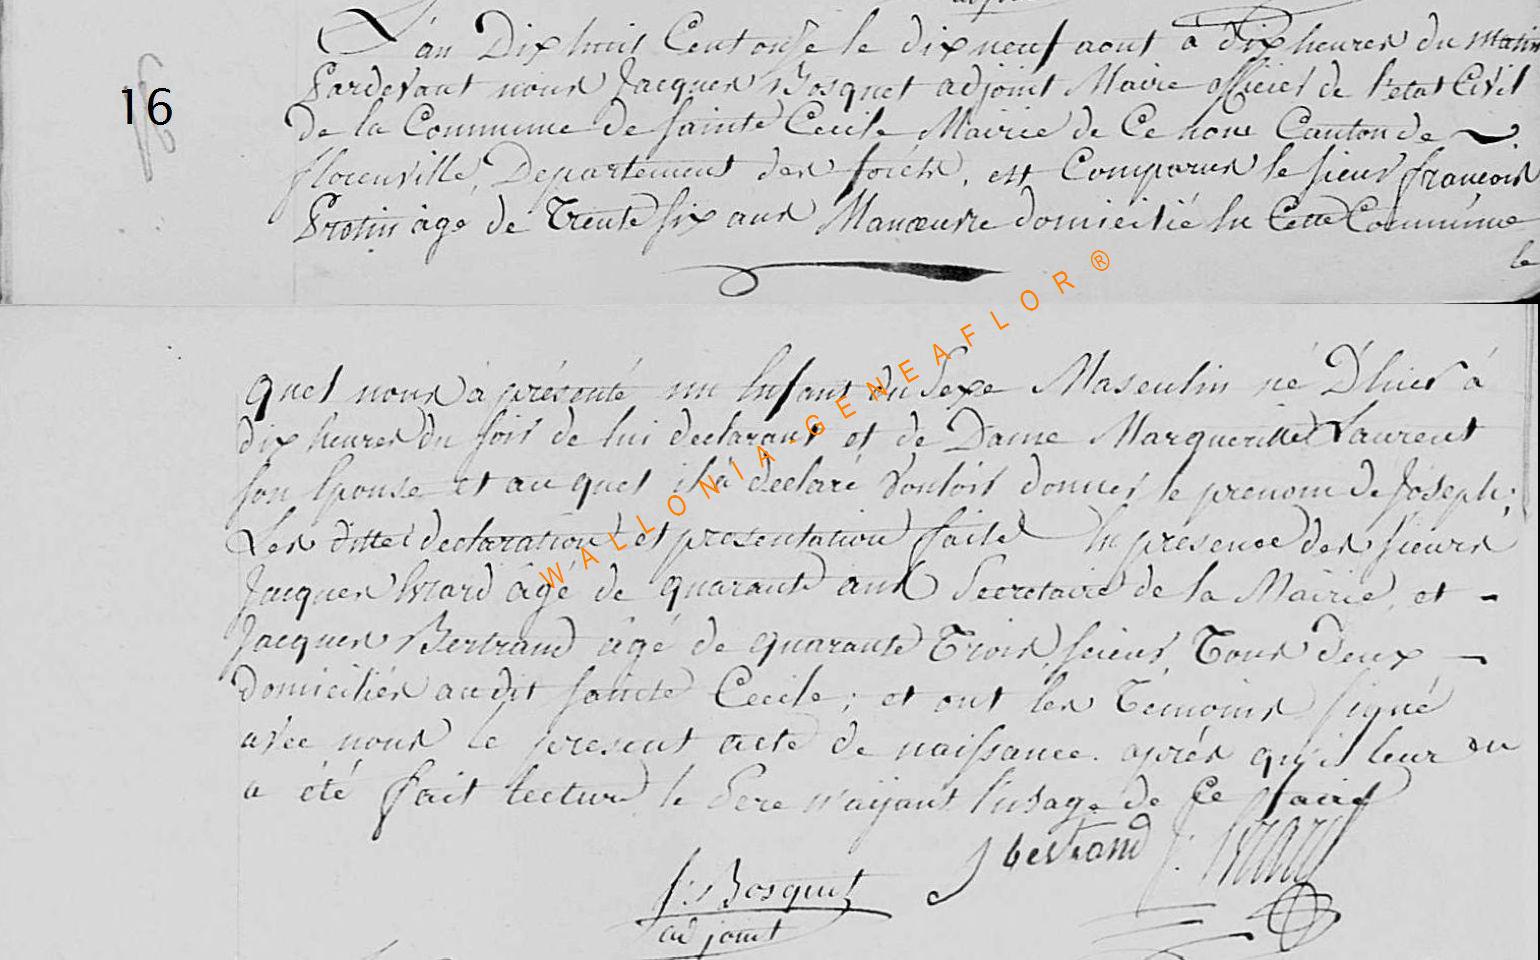 16
L'an Dix huit Cent onze le dix neuf aout à dix heures du matin
Pardevant nous Jacques Bosquet adjoint Maire officier de l'etat Civil
de la Commune de Sainte Cecile Mairie de Ce nom Canton de
florenville, Departement des forêts, est Comparus le sieur françois
Protin âgé de Trente six ans Manœuvre domicilié En Cette Commune
le
quel nous à présenté un Enfant du Sexe Masculin né D'hier à
dix heures du soir de lui declarant et de Dame Margueritte Laurent
son Epouse et au quel il à declaré Vouloir donner le prenom de Joseph;
Les ditte declaration et presentation faite En presence des sieurs
Jacques Evrard âgé de quarante ans Secretaire de la Mairie, et -
Jacques Bertrand âgé de quarante Trois, scieur, Tous deux -
domiciliés audit sainte Cecile; et ont les Temoins signé
avec nous le present acte de naissance. aprés qu'il leur en
a été fait lecture le Pere n'ayant l'usage de Ce faire
J bertrand J: Evrard
J: Bosquet
adjoint
WALLONIA-GENEAFLOR®